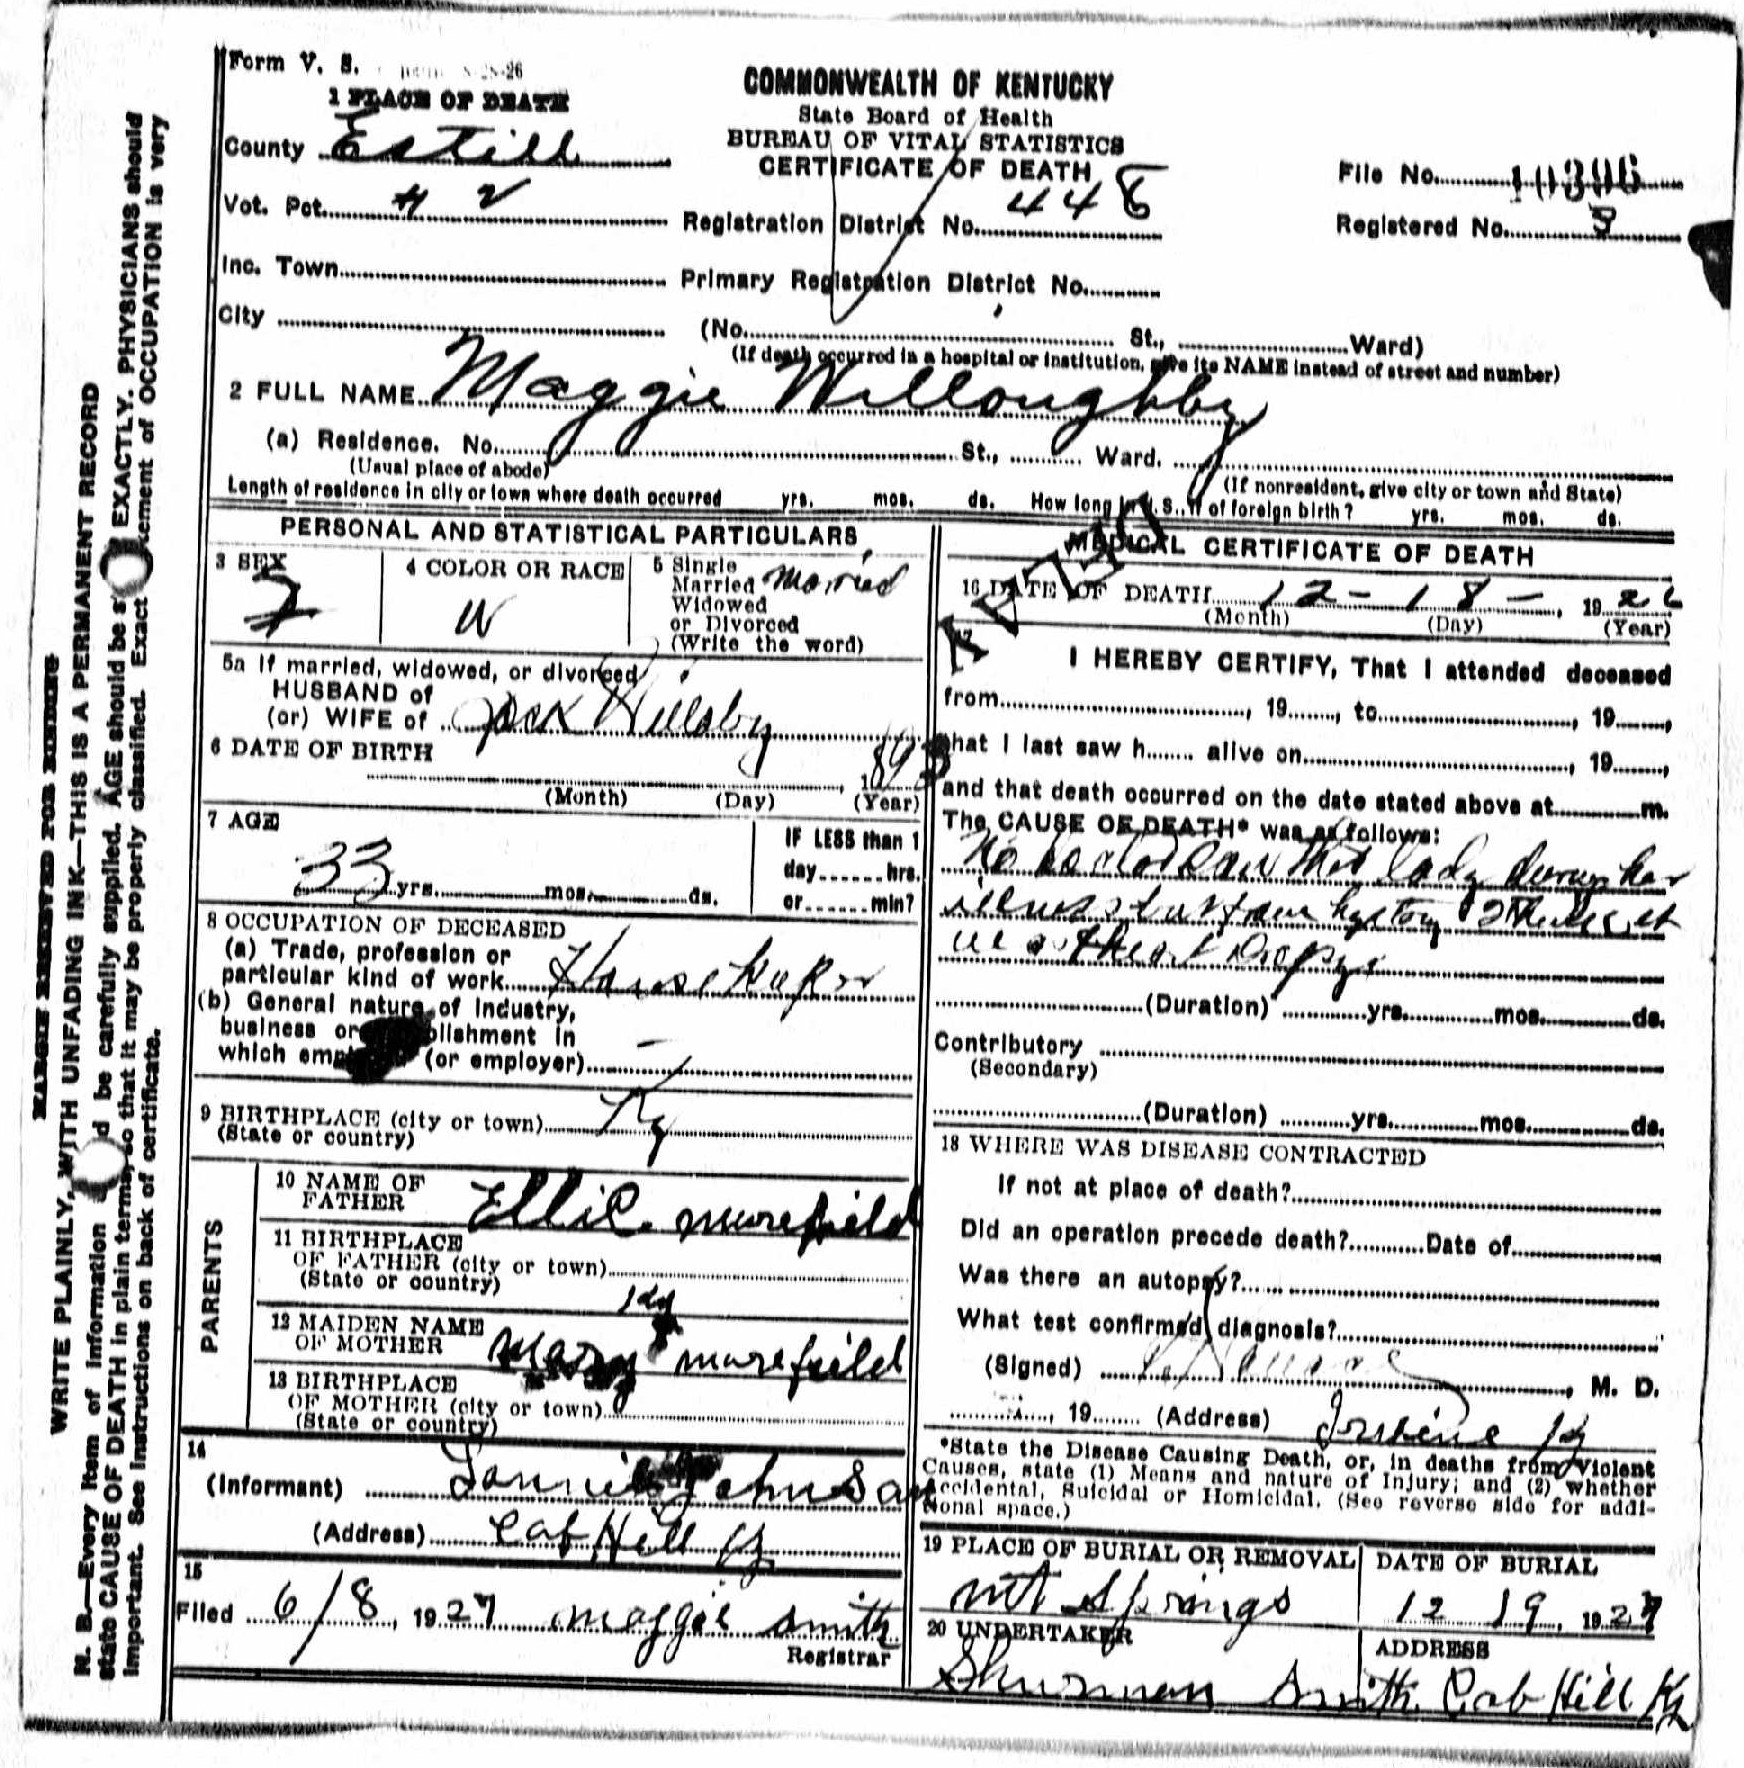 Form V. S.
1 PLACE OF DEATH
COMMONWEALTH OF KENTUCKY
State Board of Health
BUREAU OF VITAL STATISTICS
CERTIFICATE OF DEATH
County Estill
File No.
Vot. Pct. # 2
Registration District No. 448
Registered No.
Inc. Town
Primary Registration District No.
City (No. St., Ward)
(If death occurred in a hospital or institution, give its NAME instead of street and number)
2 FULL NAME Maggie Willoughby
(a) Residence. No. St., Ward.
(Usual place of abode)
(If nonresident, give city or town and State)
Length of residence in city or town where death occurred yrs. mos. ds. How long in U. S., if of foreign birth? yrs. mos. ds.
PERSONAL AND STATISTICAL PARTICULARS
3 SEX
F
4 COLOR OR RACE
W
5 Single
Married
Widowed
or Divorced
(Write the word)
Married
5a If married, widowed, or divorced
HUSBAND of
(or) WIFE of Jack Willoby
6 DATE OF BIRTH
1893
(Month) (Day) (Year)
7 AGE
33 yrs. mos. ds.
IF LESS than 1
day hrs.
or min?
8 OCCUPATION OF DECEASED
(a) Trade, profession or
particular kind of work Housekeeper
(b) General nature of Industry,
business or establishment in
which employed (or employer)
9 BIRTHPLACE (city or town) Ky
(State or country)
PARENTS
10 NAME OF
FATHER Ellie murefield
11 BIRTHPLACE
OF FATHER (city or town)
(State or country) Ky
12 MAIDEN NAME
OF MOTHER Mary murefield
13 BIRTHPLACE
OF MOTHER (city or town)
(State or country)
14
(Informant)
(Address) Cob Hill Ky
15
Filed 6/8, 1927 maggie Smith
Registrar
MEDICAL CERTIFICATE OF DEATH
16 DATE OF DEATH 12-18-, 1926
(Month) (Day) (Year)
17
I HEREBY CERTIFY, That I attended deceased
from, 19, to, 19,
that I last saw h alive on, 19,
and that death occurred on the date stated above at m.
The CAUSE OF DEATH* was as follows:
No doctor saw this lady during her
illness but from history I think it
was Heart Dropsy
(Duration) yrs. mos. ds.
Contributory
(Secondary)
(Duration) yrs. mos. ds.
18 WHERE WAS DISEASE CONTRACTED
If not at place of death?
Did an operation precede death? Date of
Was there an autopsy?
What test confirmed diagnosis?
(Signed) , M. D.
, 19 (Address) Irvine Ky
*State the Disease Causing Death, or, in deaths from Violent
Causes, state (1) Means and nature of Injury; and (2) whether
Accidental, Suicidal or Homicidal. (See reverse side for addi-
tional space.)
19 PLACE OF BURIAL OR REMOVAL
Mt Springs
DATE OF BURIAL
12 19, 1927
20 UNDERTAKER
ADDRESS
Shurman Smith Cob Hill Ky
MARGIN RESERVED FOR BINDING
WRITE PLAINLY, WITH UNFADING INK—THIS IS A PERMANENT RECORD
N. B.—Every item of information should be carefully supplied. AGE should be stated EXACTLY. PHYSICIANS should
state CAUSE OF DEATH in plain terms, so that it may be properly classified. Exact statement of OCCUPATION is very
important. See instructions on back of certificate.